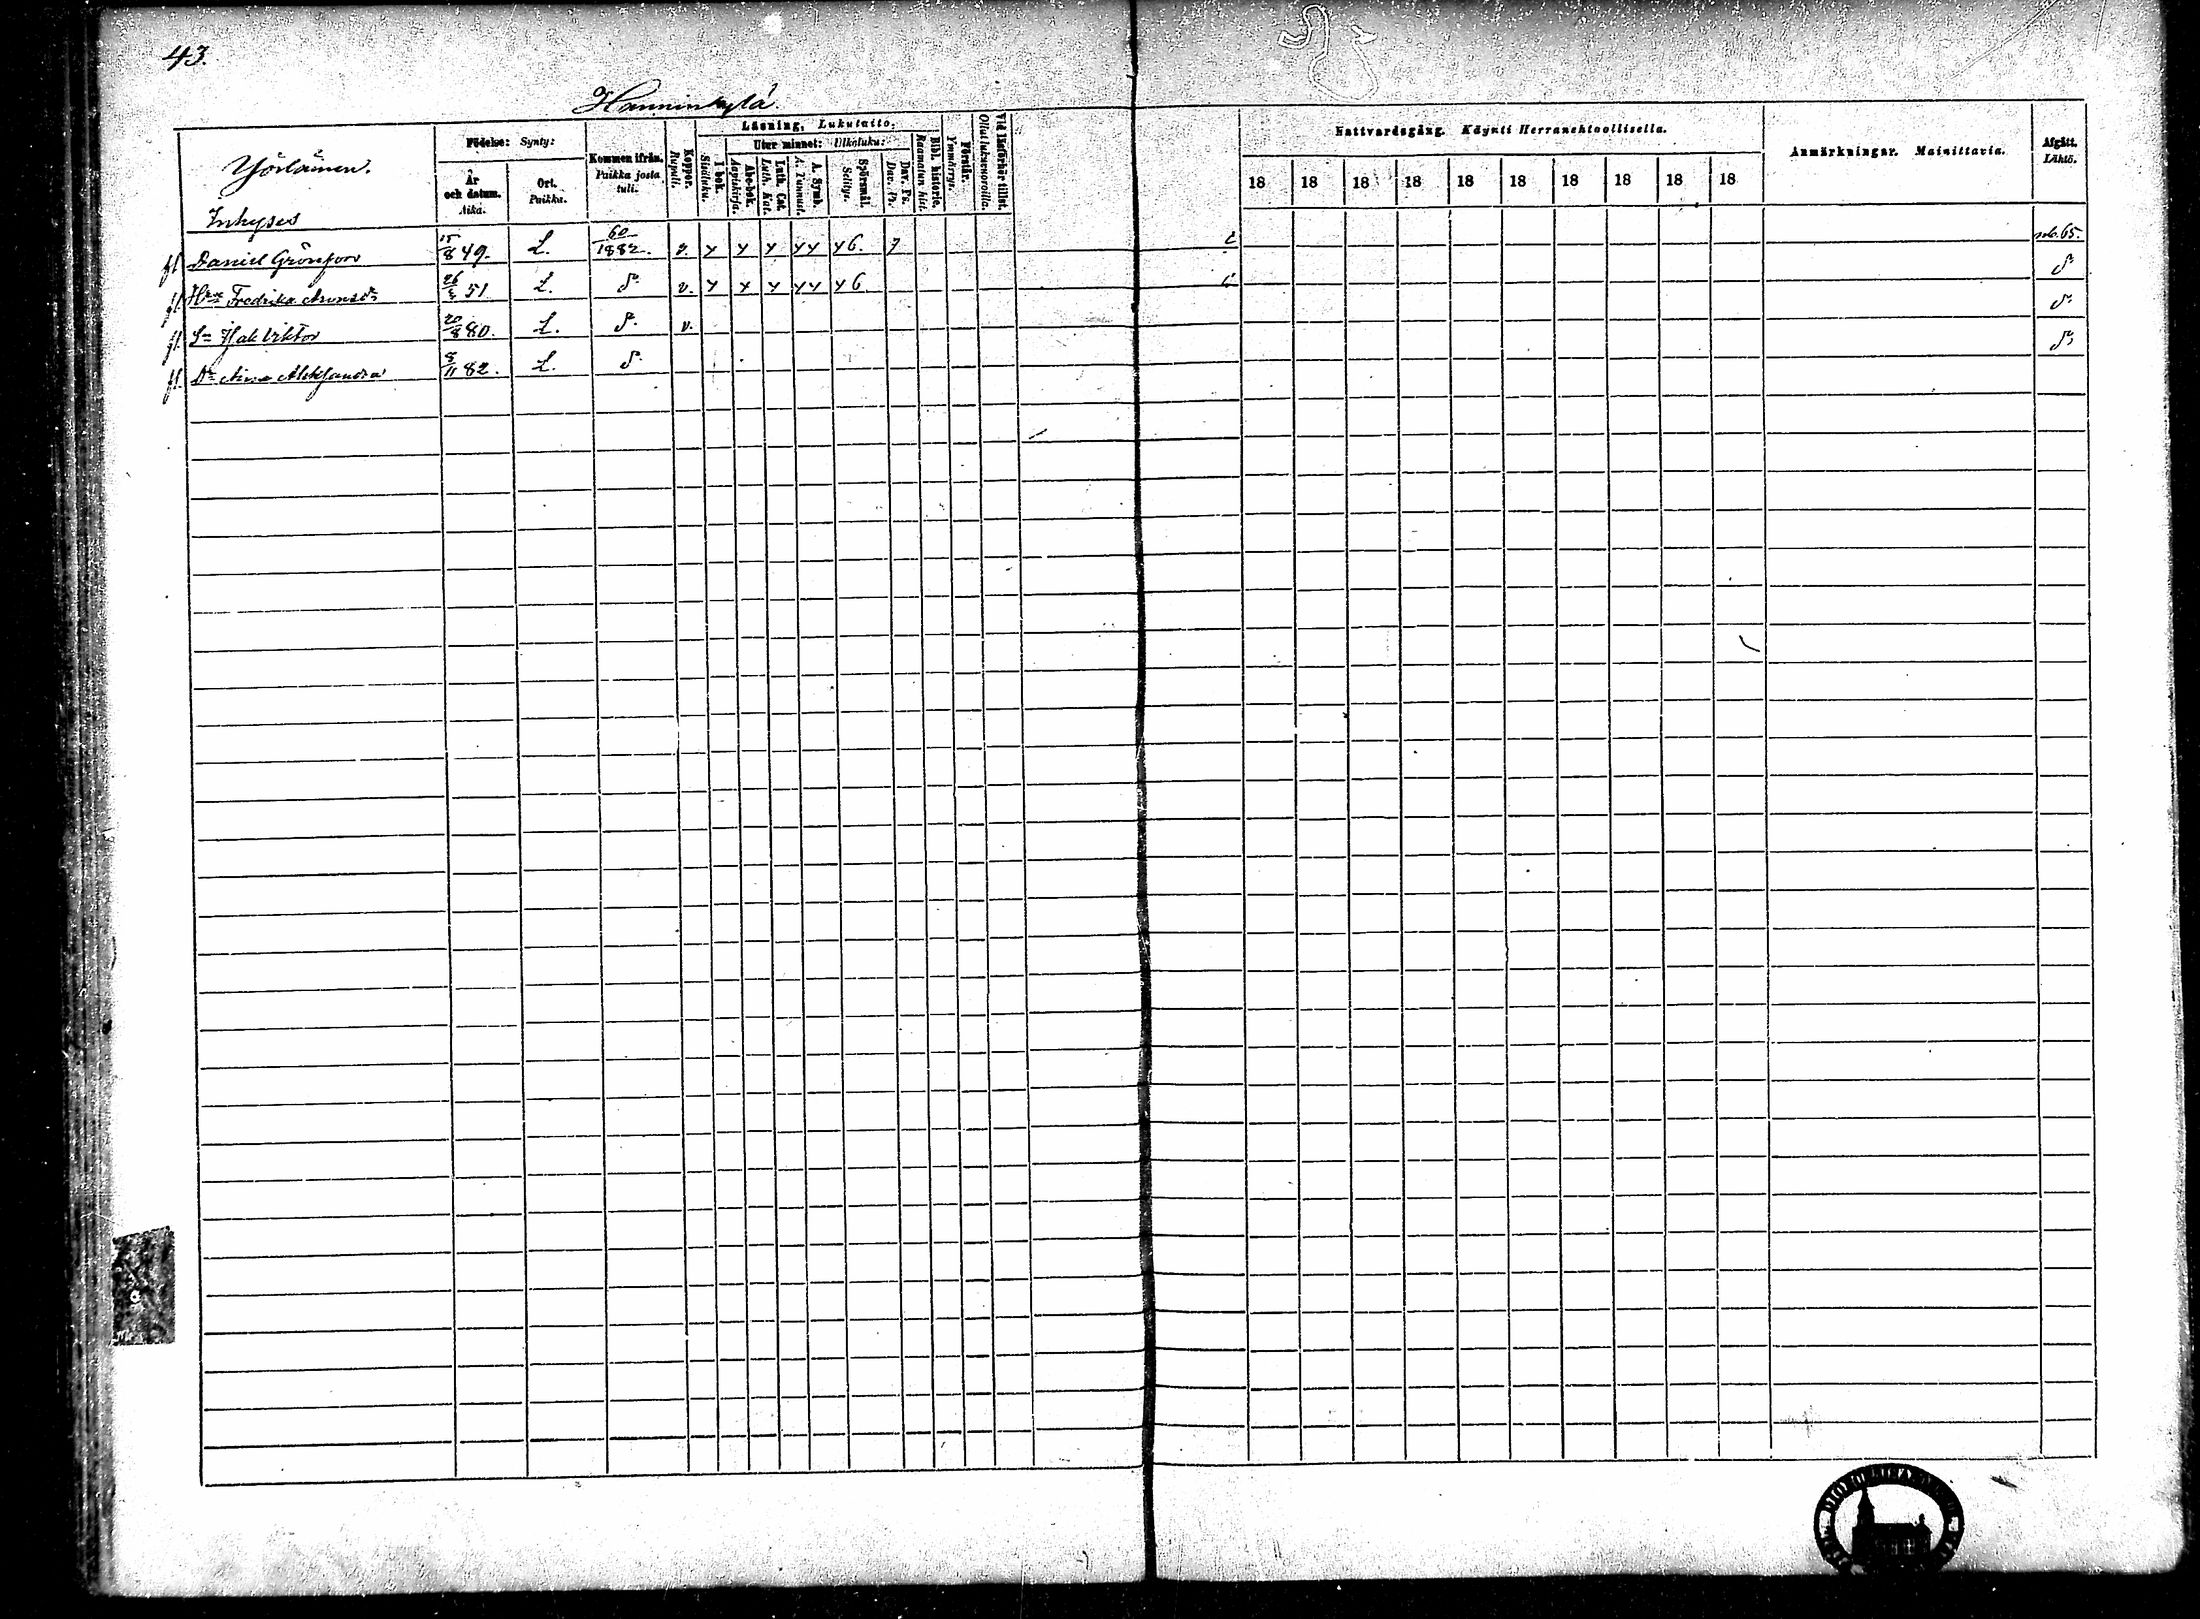 43.
Hanninkylä
Födelse: Synty:
År och datum. Aika.
Ort. Paikka.
Kommen ifrån. Paikka josta tuli.
Koppor. Rupuli.
Läsning, Lukutaito.
I bok. Sisäluku.
Utur minnet: Ulkoluku:
Abc-bok. Aapiskirja.
Luth. Cat. Luth. Kat.
A. Symb. A. Tunnust.
Spörsmål. Selitys.
Dav. Ps. Dav. Ps.
Bibl. historie. Raamatun hist.
Förstår. Ymmärrys.
Vid läsförhör tillst. Ollut lukuvuoroilla.
Nattvardsgång. Käynti Herranehtoollisella.
18 18 18 18 18 18 18 18 18 18
Anmärkningar. Mainittavia.
Afgått. Lähtö.
Yöslämen.
Inhyses
fl. Daniel Grönfors 15/8 49. L. 60/1882. v. y y y yy y6. 7 sub. 65.
fl. Fredrika 26 51 L. v. y y y yy y6
fl. Sn Isak Viktor 20/8 80. L. v.
fl. Dr Alexandra 8/11 82. L.